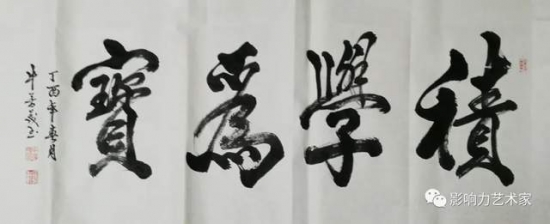 積學爲寶
丁酉年春月
影响力艺术家